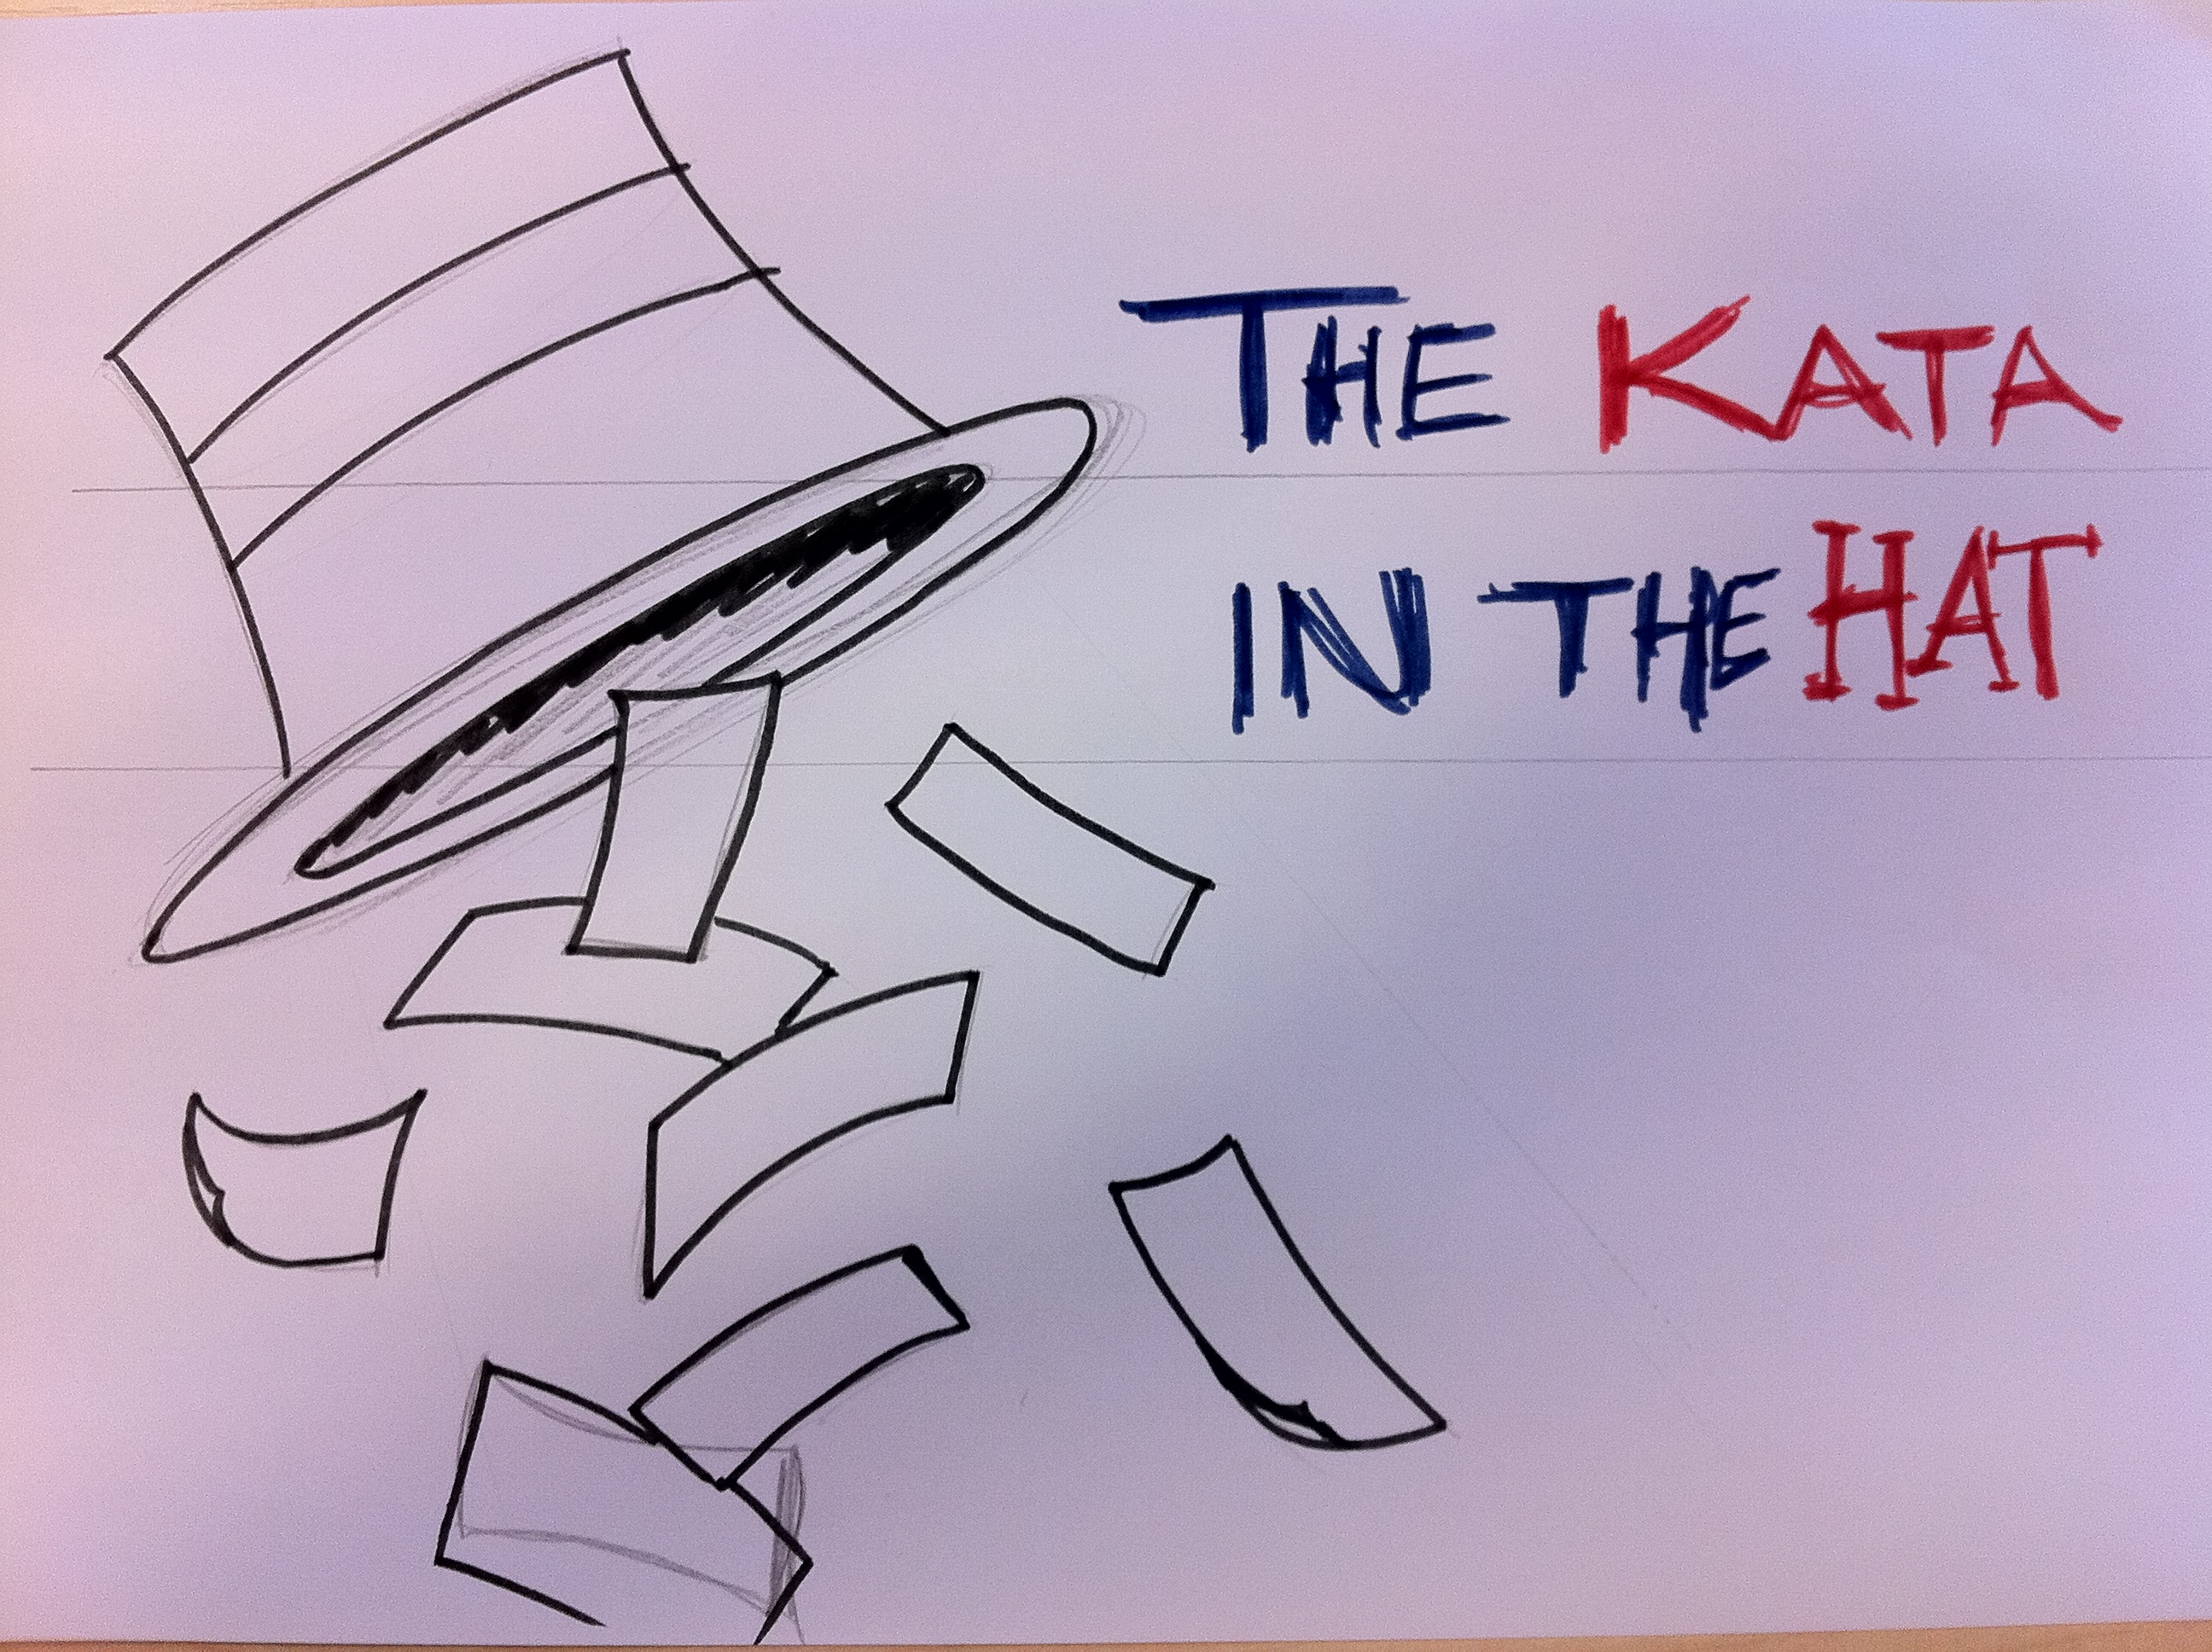 THE KATA
IN THE HAT